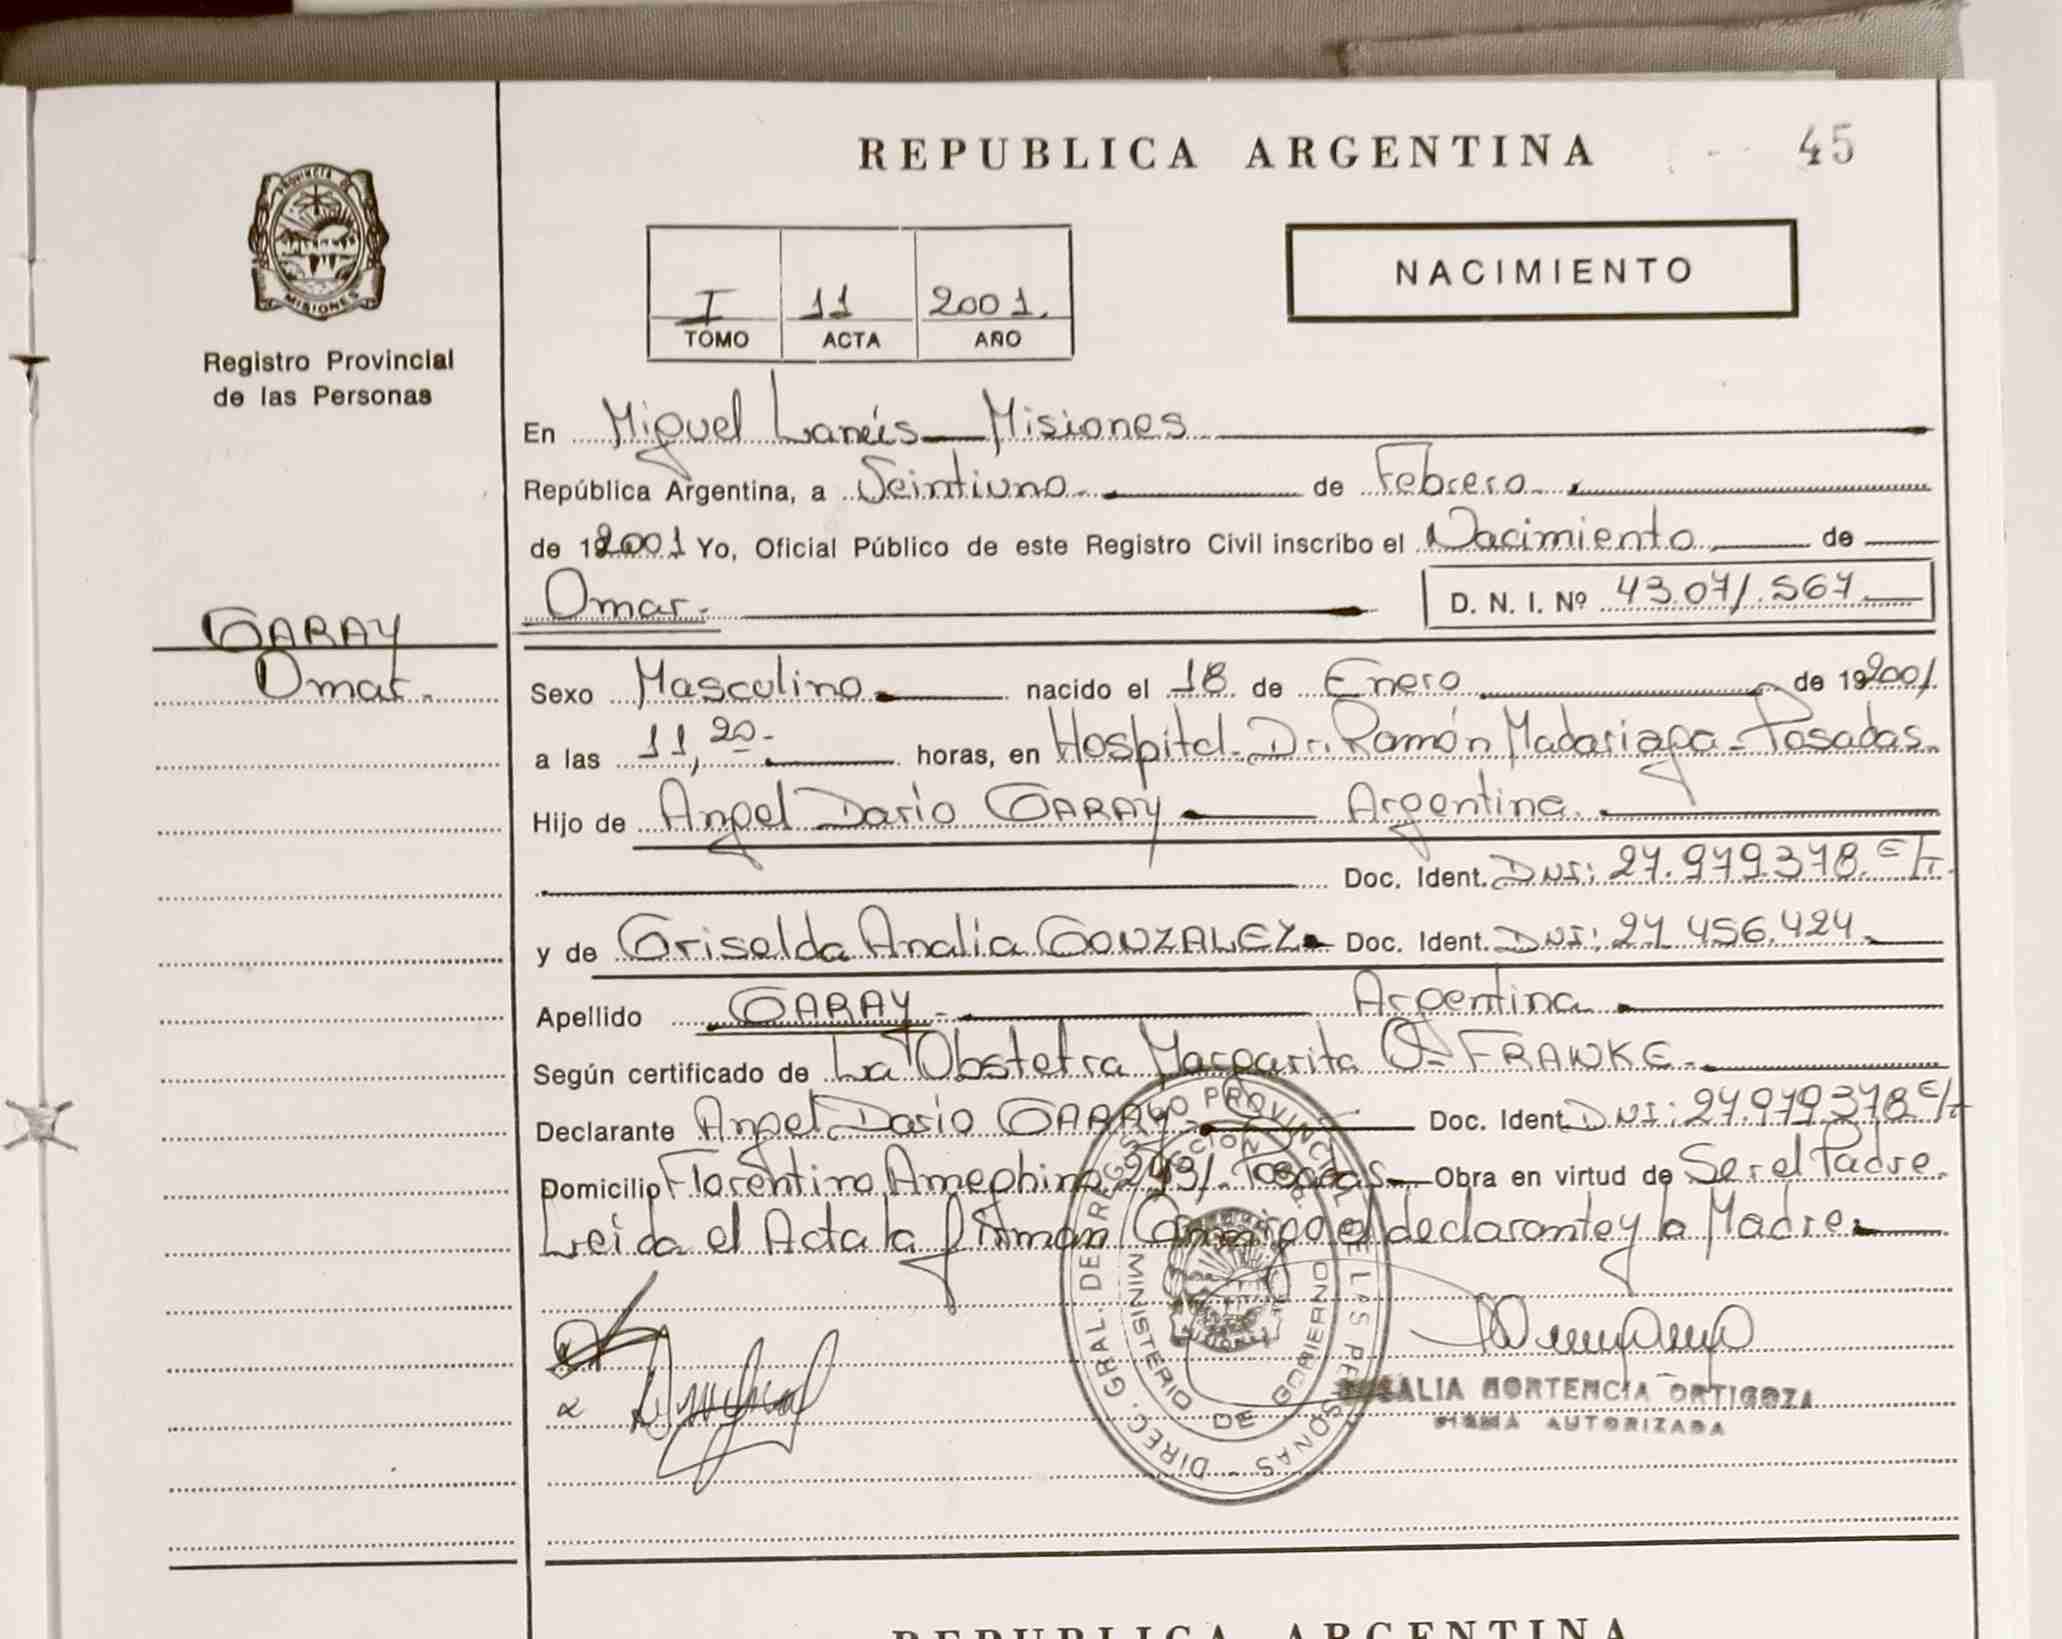 REPUBLICA ARGENTINA
45
PROVINCIA DE
MISIONES
Registro Provincial
de las Personas
I 11 2001.
TOMO ACTA AÑO
NACIMIENTO
En Miguel Lanús Misiones
República Argentina, a Veintiuno de Febrero
de 192001 Yo, Oficial Público de este Registro Civil inscribo el Nacimiento de
Omar. D. N. I. Nº 43.071.567
GARAY
Omar.
Sexo Masculino nacido el 18 de Enero de 192001
a las 11,20- horas, en Hospital Dr. Ramón Madariaga - Posadas.
Hijo de Angel Dario GARAY Argentina.
Doc. Ident. DNI: 27.979.378. E/T.
y de Griselda Analia GONZALEZ Doc. Ident. DNI: 27 456.424.
Apellido GARAY - Argentina
Según certificado de La Obstetra Margarita O. FRANKE.
Declarante Angel Dario GARAY Doc. Ident. DNI: 27.979.378 E/T
Domicilio Florentino Ameghino Posadas Obra en virtud de Ser el Padre.
Leida el Acta la firman Conmigo el declarante y la Madre.
DIREC. GRAL. DE REGISTRO PROVINCIAL DE LAS PERSONAS
MINISTERIO DE GOBIERNO
MISIONES
ROSALIA HORTENCIA ORTIGOZA
FIRMA AUTORIZADA
REPUBLICA ARGENTINA